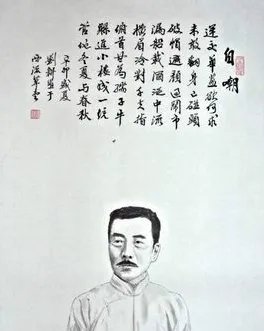 自嘲
運交華蓋欲何求
未敢翻身已碰頭
破帽遮顏過鬧市
漏船載酒泛中流
橫眉冷對千夫指
俯首甘為孺子牛
躲進小樓成一統
管他冬夏與春秋
辛卯盛夏